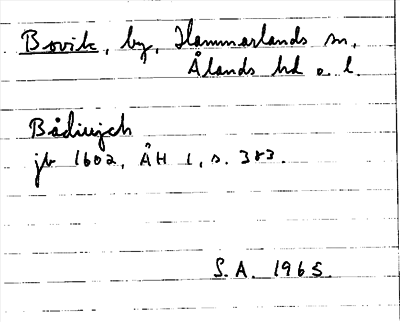 Bovik, by, Hammarlands sn,
Ålands hd o. l.
Bådiujch
jb 1602, ÅH 1, s. 383.
S.A. 1965.